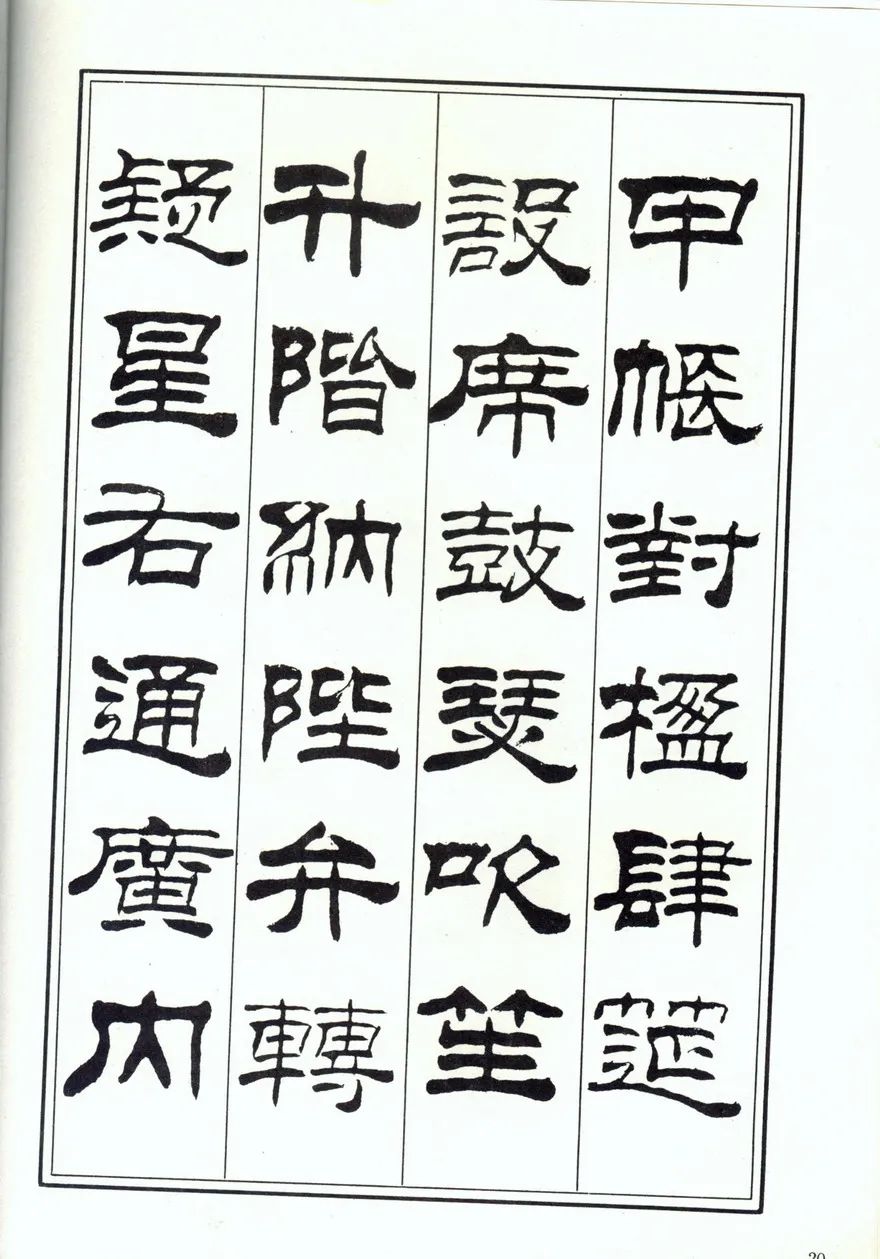 甲帳對楹肆筵
設席鼓瑟吹笙
升階納陛弁轉
疑星右通廣內
20